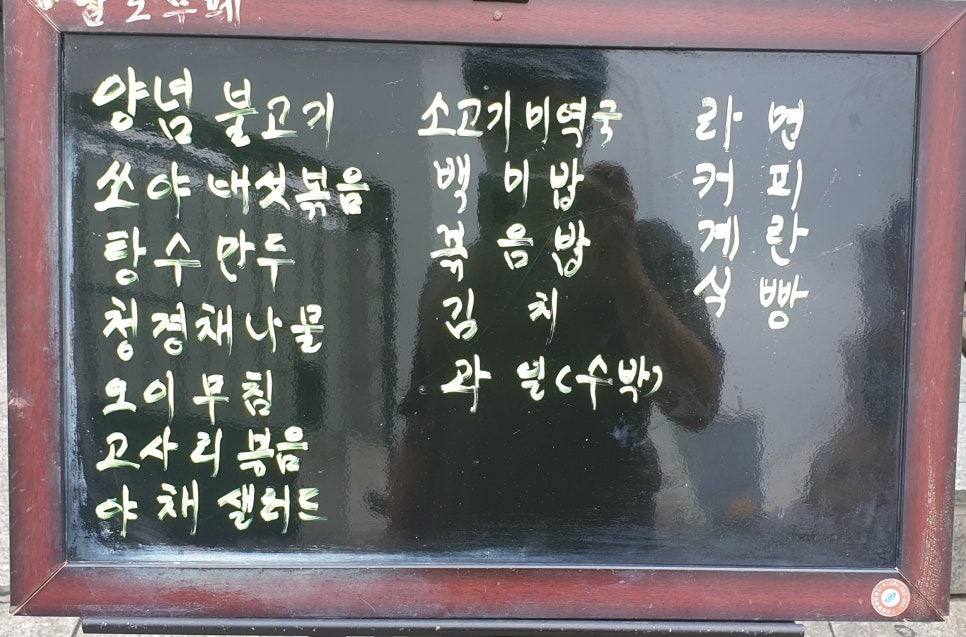 양념 불고기
쏘야 버섯볶음
탕수만두
청경채나물
오이무침
고사리볶음
야채샐러드
소고기미역국
백미밥
볶음밥
김치
과일(수박)
라면
커피
계란
식빵